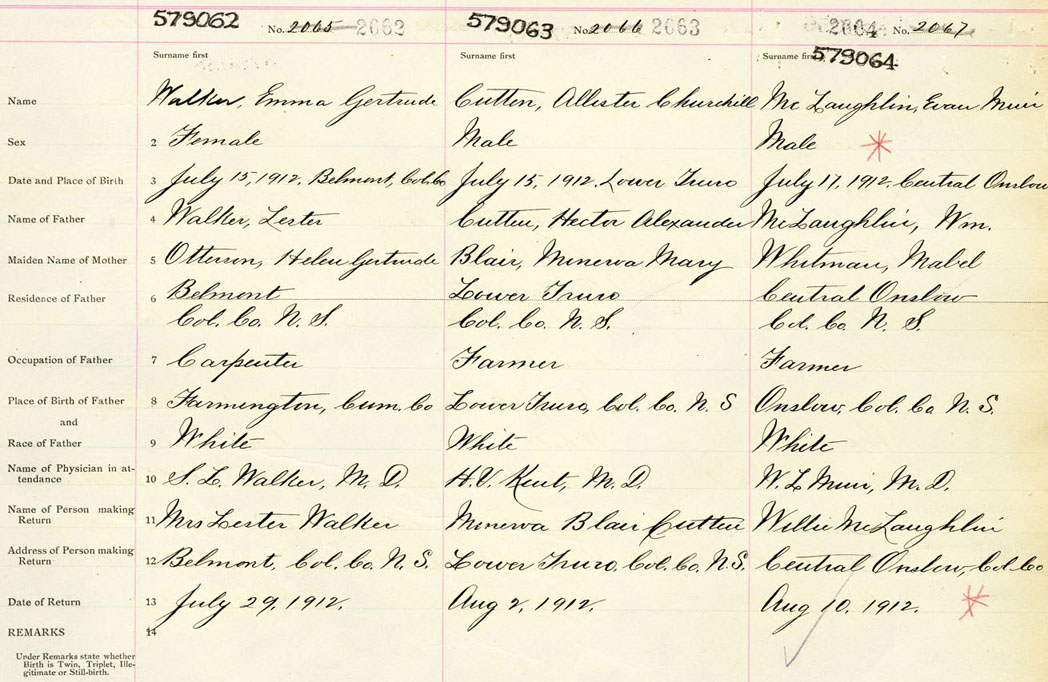 579062 No. 2065 2062 579063 No. 2066 2063 2064 No. 2067
Surname first Surname first Surname first 579064
Name Walker, Emma Gertrude Cutten, Allister Churchill Mc Laughlin, Evan Muir
Sex 2 Female Male Male
Date and Place of Birth 3 July 15, 1912. Belmont, Col. Co July 15, 1912. Lower Truro July 17, 1912. Central Onslow
Name of Father 4 Walker, Lester Cutten, Hector Alexander McLaughlin, Wm.
Maiden Name of Mother 5 Otterson, Helen Gertrude Blair, Minerva Mary Whitman, Mabel
Residence of Father 6 Belmont Lower Truro Central Onslow
Col. Co. N. S. Col. Co. N. S. Col. Co. N. S.
Occupation of Father 7 Carpenter Farmer Farmer
Place of Birth of Father 8 Farmington, Cum. Co Lower Truro, Col. Co. N. S Onslow, Col. Co N. S.
and
Race of Father 9 White White White
Name of Physician in at-
tendance 10 S. L. Walker, M. D. H. V. Kent, M. D. W. L Muir, M. D.
Name of Person making
Return 11 Mrs Lester Walker Minerva Blair Cutten Willie McLaughlin
Address of Person making
Return 12 Belmont, Col. Co. N. S. Lower Truro, Col. Co. N. S. Central Onslow, Col. Co
Date of Return 13 July 29, 1912. Aug 2, 1912. Aug 10, 1912.
REMARKS 14
Under Remarks state whether
Birth is Twin, Triplet, Ille-
gitimate or Still-birth.